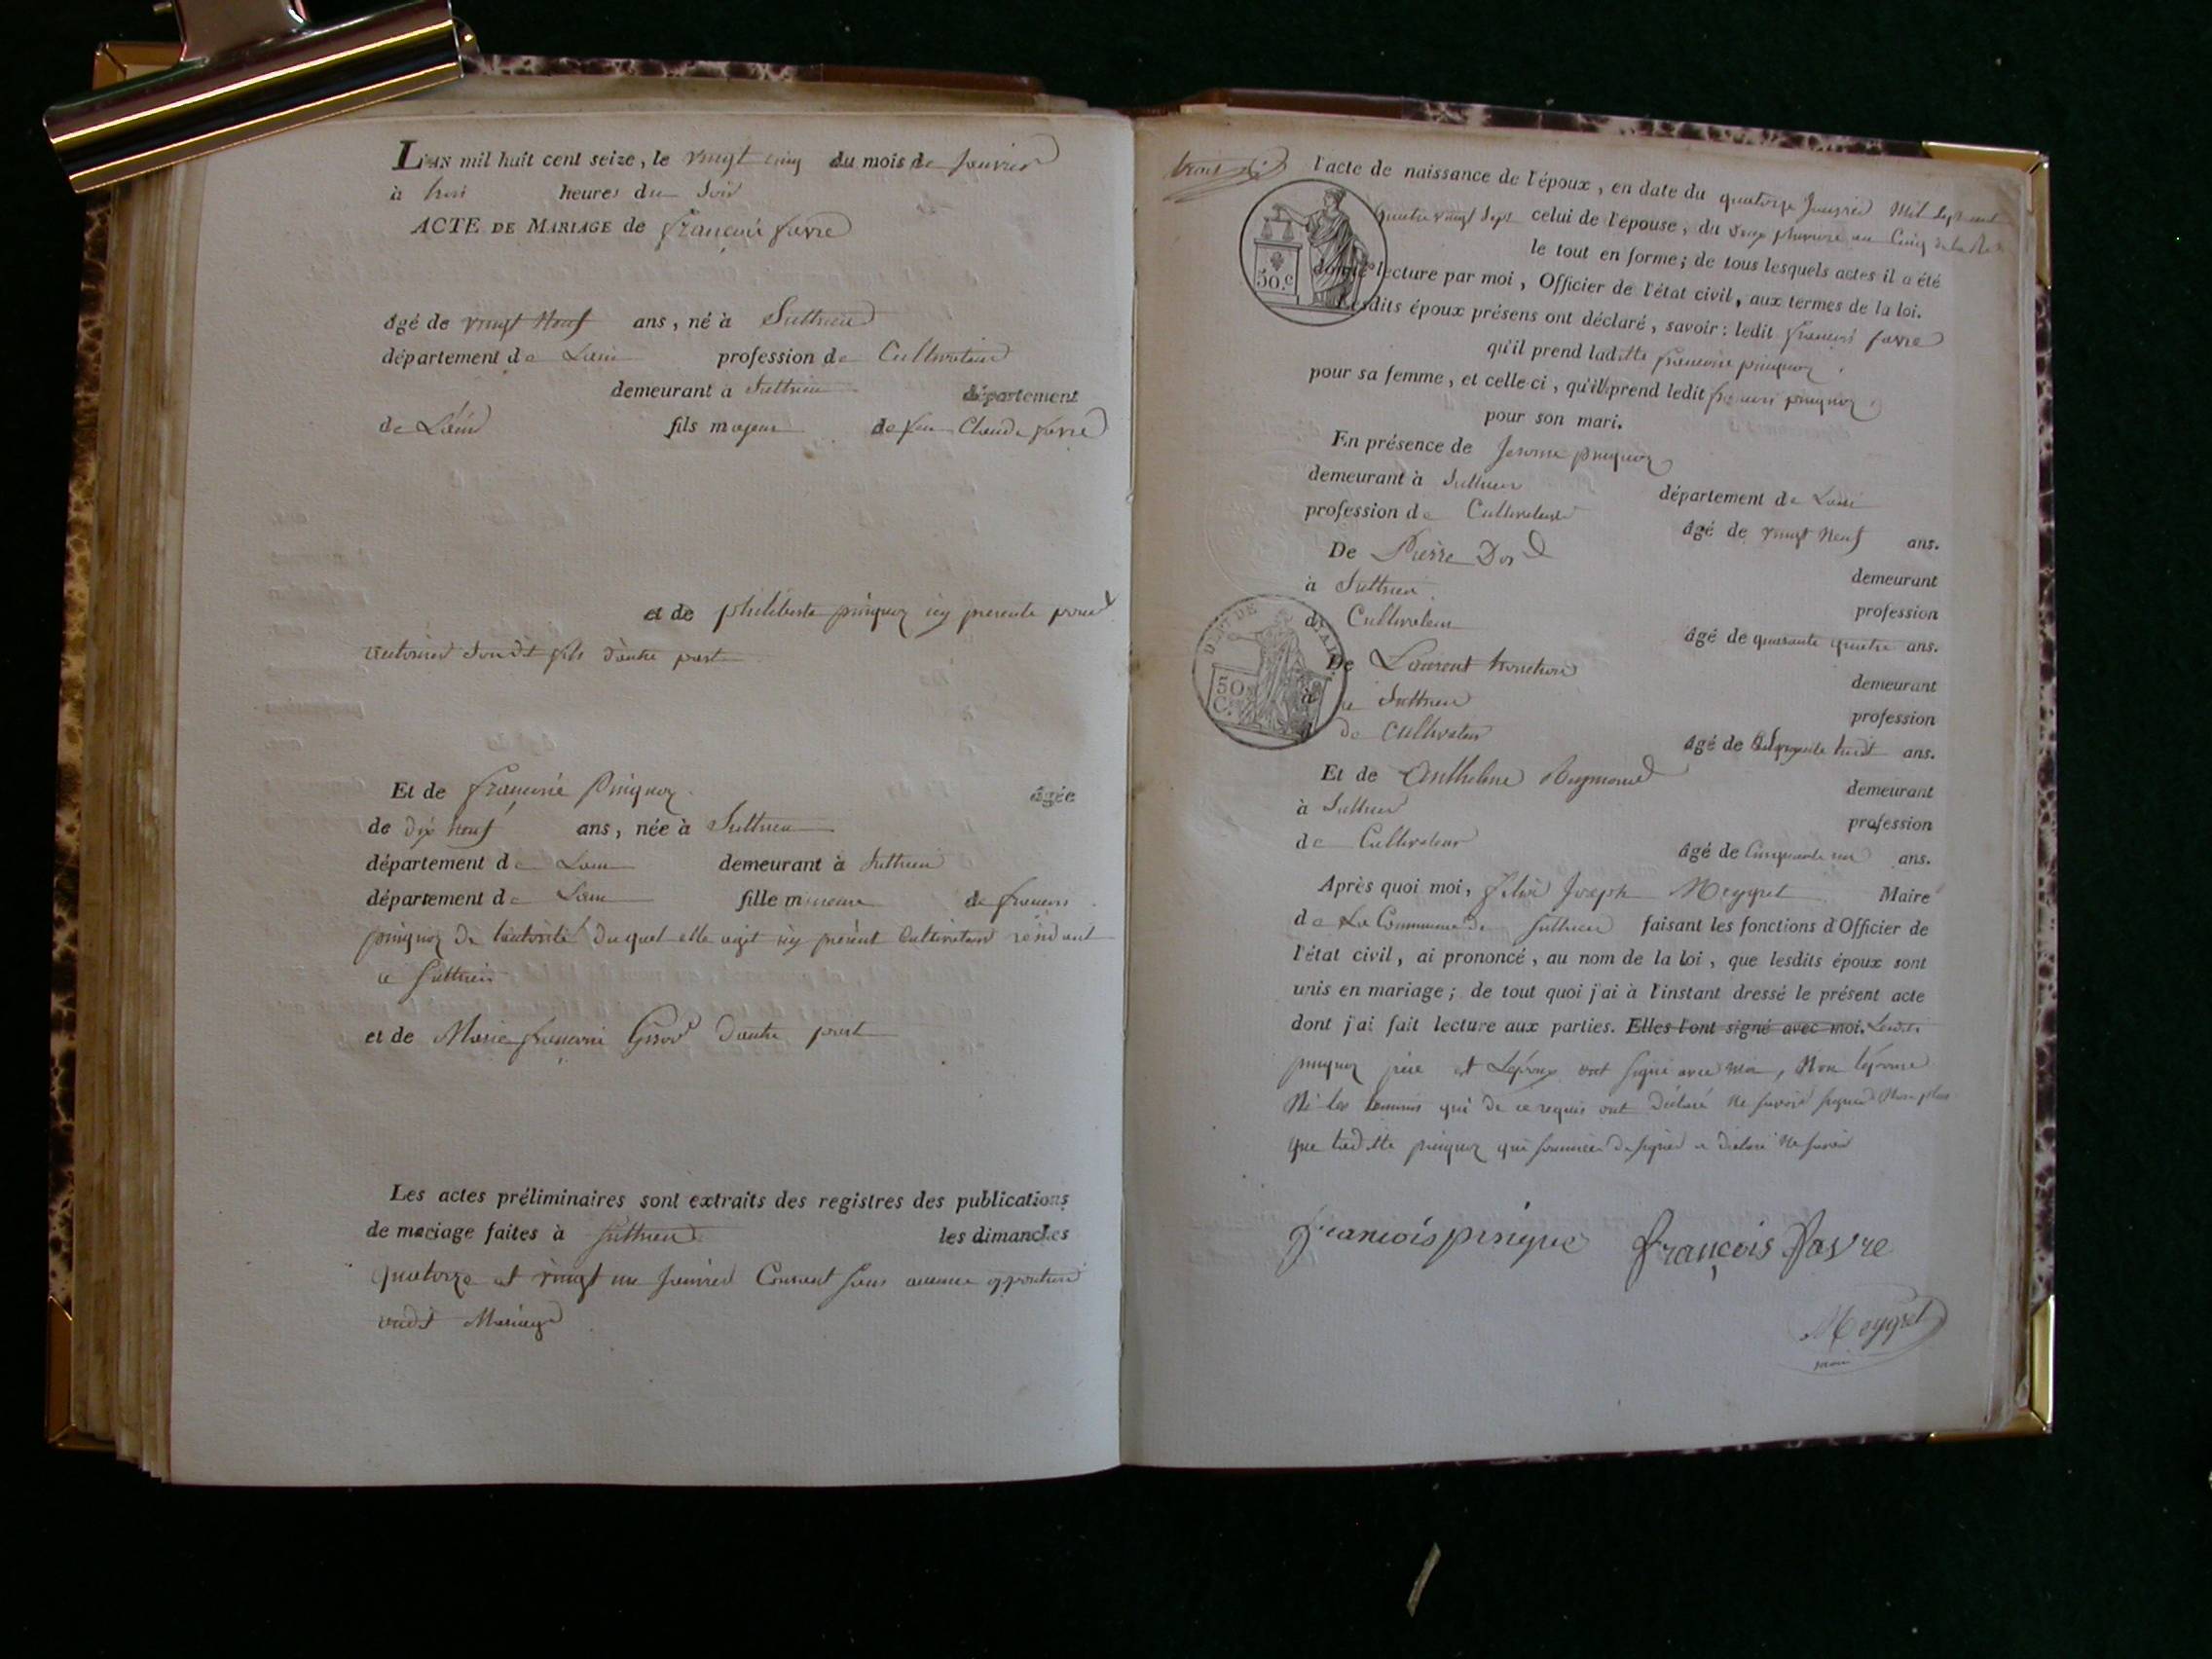 L'AN mil huit cent seize, le vingt cinq du mois de janvier
à trois heures du soir
ACTE DE MARIAGE de françois favre
âgé de vingt Neuf ans, né à Suttrieu
département de Lain profession de Cultivateur
demeurant à Suttrieu département
de Lain fils majeur de feu Claude favre
et de philiberte pinguoz icy presente pour
autoriser son dt fils d'autre part
Et de françoise Pinguoz âgée
de dix Neuf ans, née à Suttrieu
département de Lain demeurant à Suttrieu
département de Lain fille mineure de francois
pinguoz de l'autorité du quel elle agit icy présent Cultivateur résidant
a Suttrieu
et de Marie françoise d'autre part
Les actes préliminaires sont extraits des registres des publications
de mariage faites à Suttrieu les dimanches
quatorze et vingt un janvier Courant sans aucune opposition
audt Mariage
trois
l'acte de naissance de l'époux, en date du quatorze Janvier Mil Sept cent
quatre vingt Sept celui de l'épouse, du pluviose an Cinq de la
le tout en forme; de tous lesquels actes il a été
donné lecture par moi, Officier de l'état civil, aux termes de la loi.
50.c
Lesdits époux présens ont déclaré, savoir: ledit françois favre
qu'il prend laditte françoise pinguoz
pour sa femme, et celle ci, qu'ill prend ledit françois pinguoz
pour son mari.
En présence de Jerome pinguoz
demeurant à Suttrieu département de Lain
profession de Cultivateur âgé de vingt Neuf ans.
De Pierre Dor demeurant
à Suttrieu profession
de Cultivateur âgé de quarante quatre ans.
DEPT DE L'AIN
50 C.
De Laurent demeurant
à a Suttrieu profession
de Cultivateur âgé de huit ans.
Et de Anthelme Reymond demeurant
à Suttrieu profession
de Cultivateur âgé de Cinquante un ans.
Après quoi moi, Joseph Meygret Maire
de La Commune de Suttrieu faisant les fonctions d'Officier de
l'état civil, ai prononcé, au nom de la loi, que lesdits époux sont
unis en mariage; de tout quoi j'ai à l'instant dressé le présent acte
dont j'ai fait lecture aux parties. Elles l'ont signé avec moi. Lesdits
pinguoz père et Lépoux ont signé avec moi, Non lépouse
Ni les temoins qui de ce requis ont déclaré Ne savoir signer Non plus
que laditte pinguoz qui sommée de signer a déclaré Ne savoir
francois pinguoz françois favre
Meygret
maire